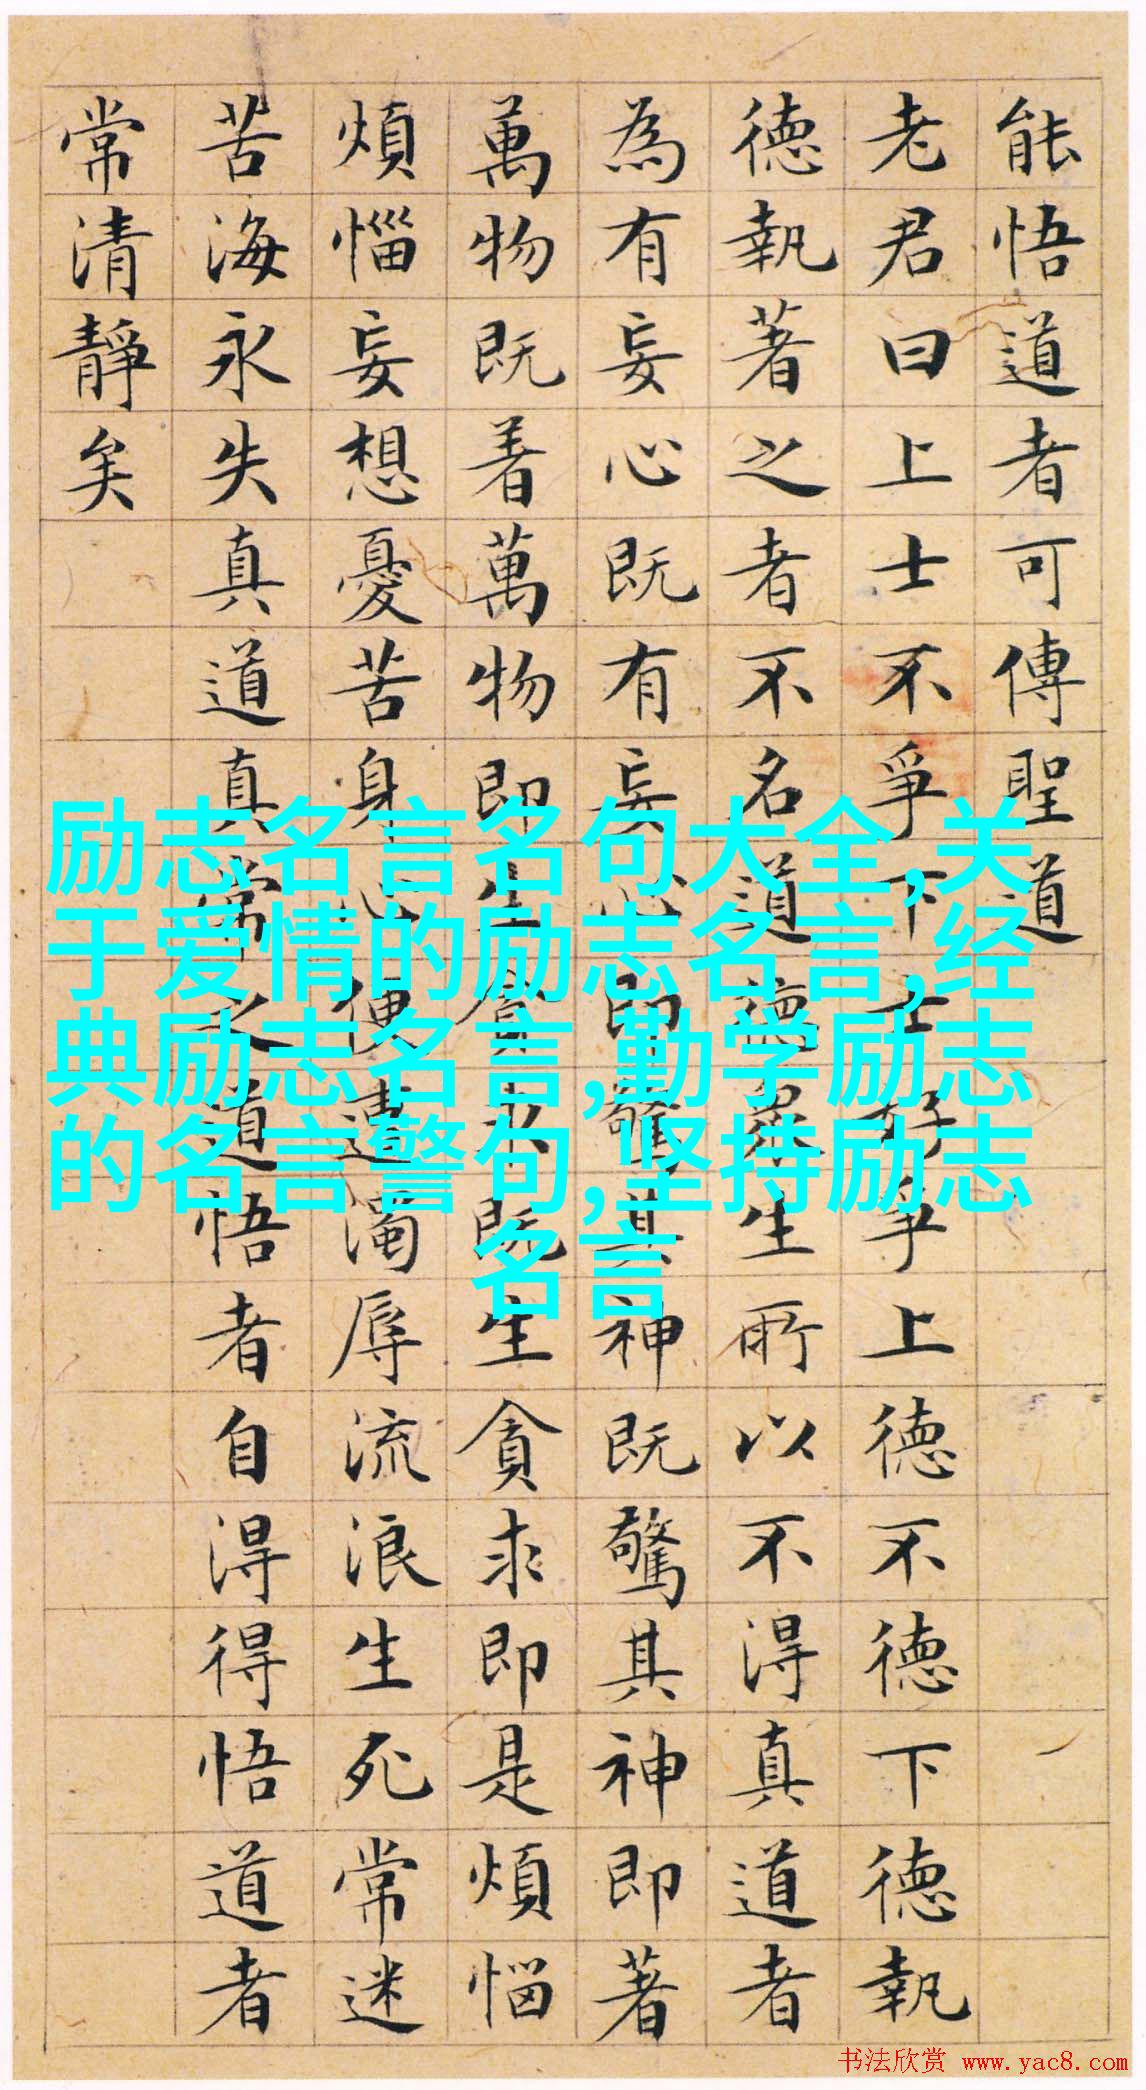 能悟道者可傳聖道
老君曰上士不爭下士好爭上德不德下德執
德執著之者不名道德眾生所以不得真道者
為有妄心既有妄心即驚其神既驚其神即著
萬物既着萬物即生貪求既生貪求即是煩惱
煩惱妄想憂苦身心便遭濁辱流浪生死常迷
苦海永失真道真常之道悟者自得得悟道者
常清靜矣
励志名言名句大全,关
于爱情的励志名言,经
典励志名言,勤学励志
的名言警句,坚持励志
名言
书法欣赏 www.yac8.com